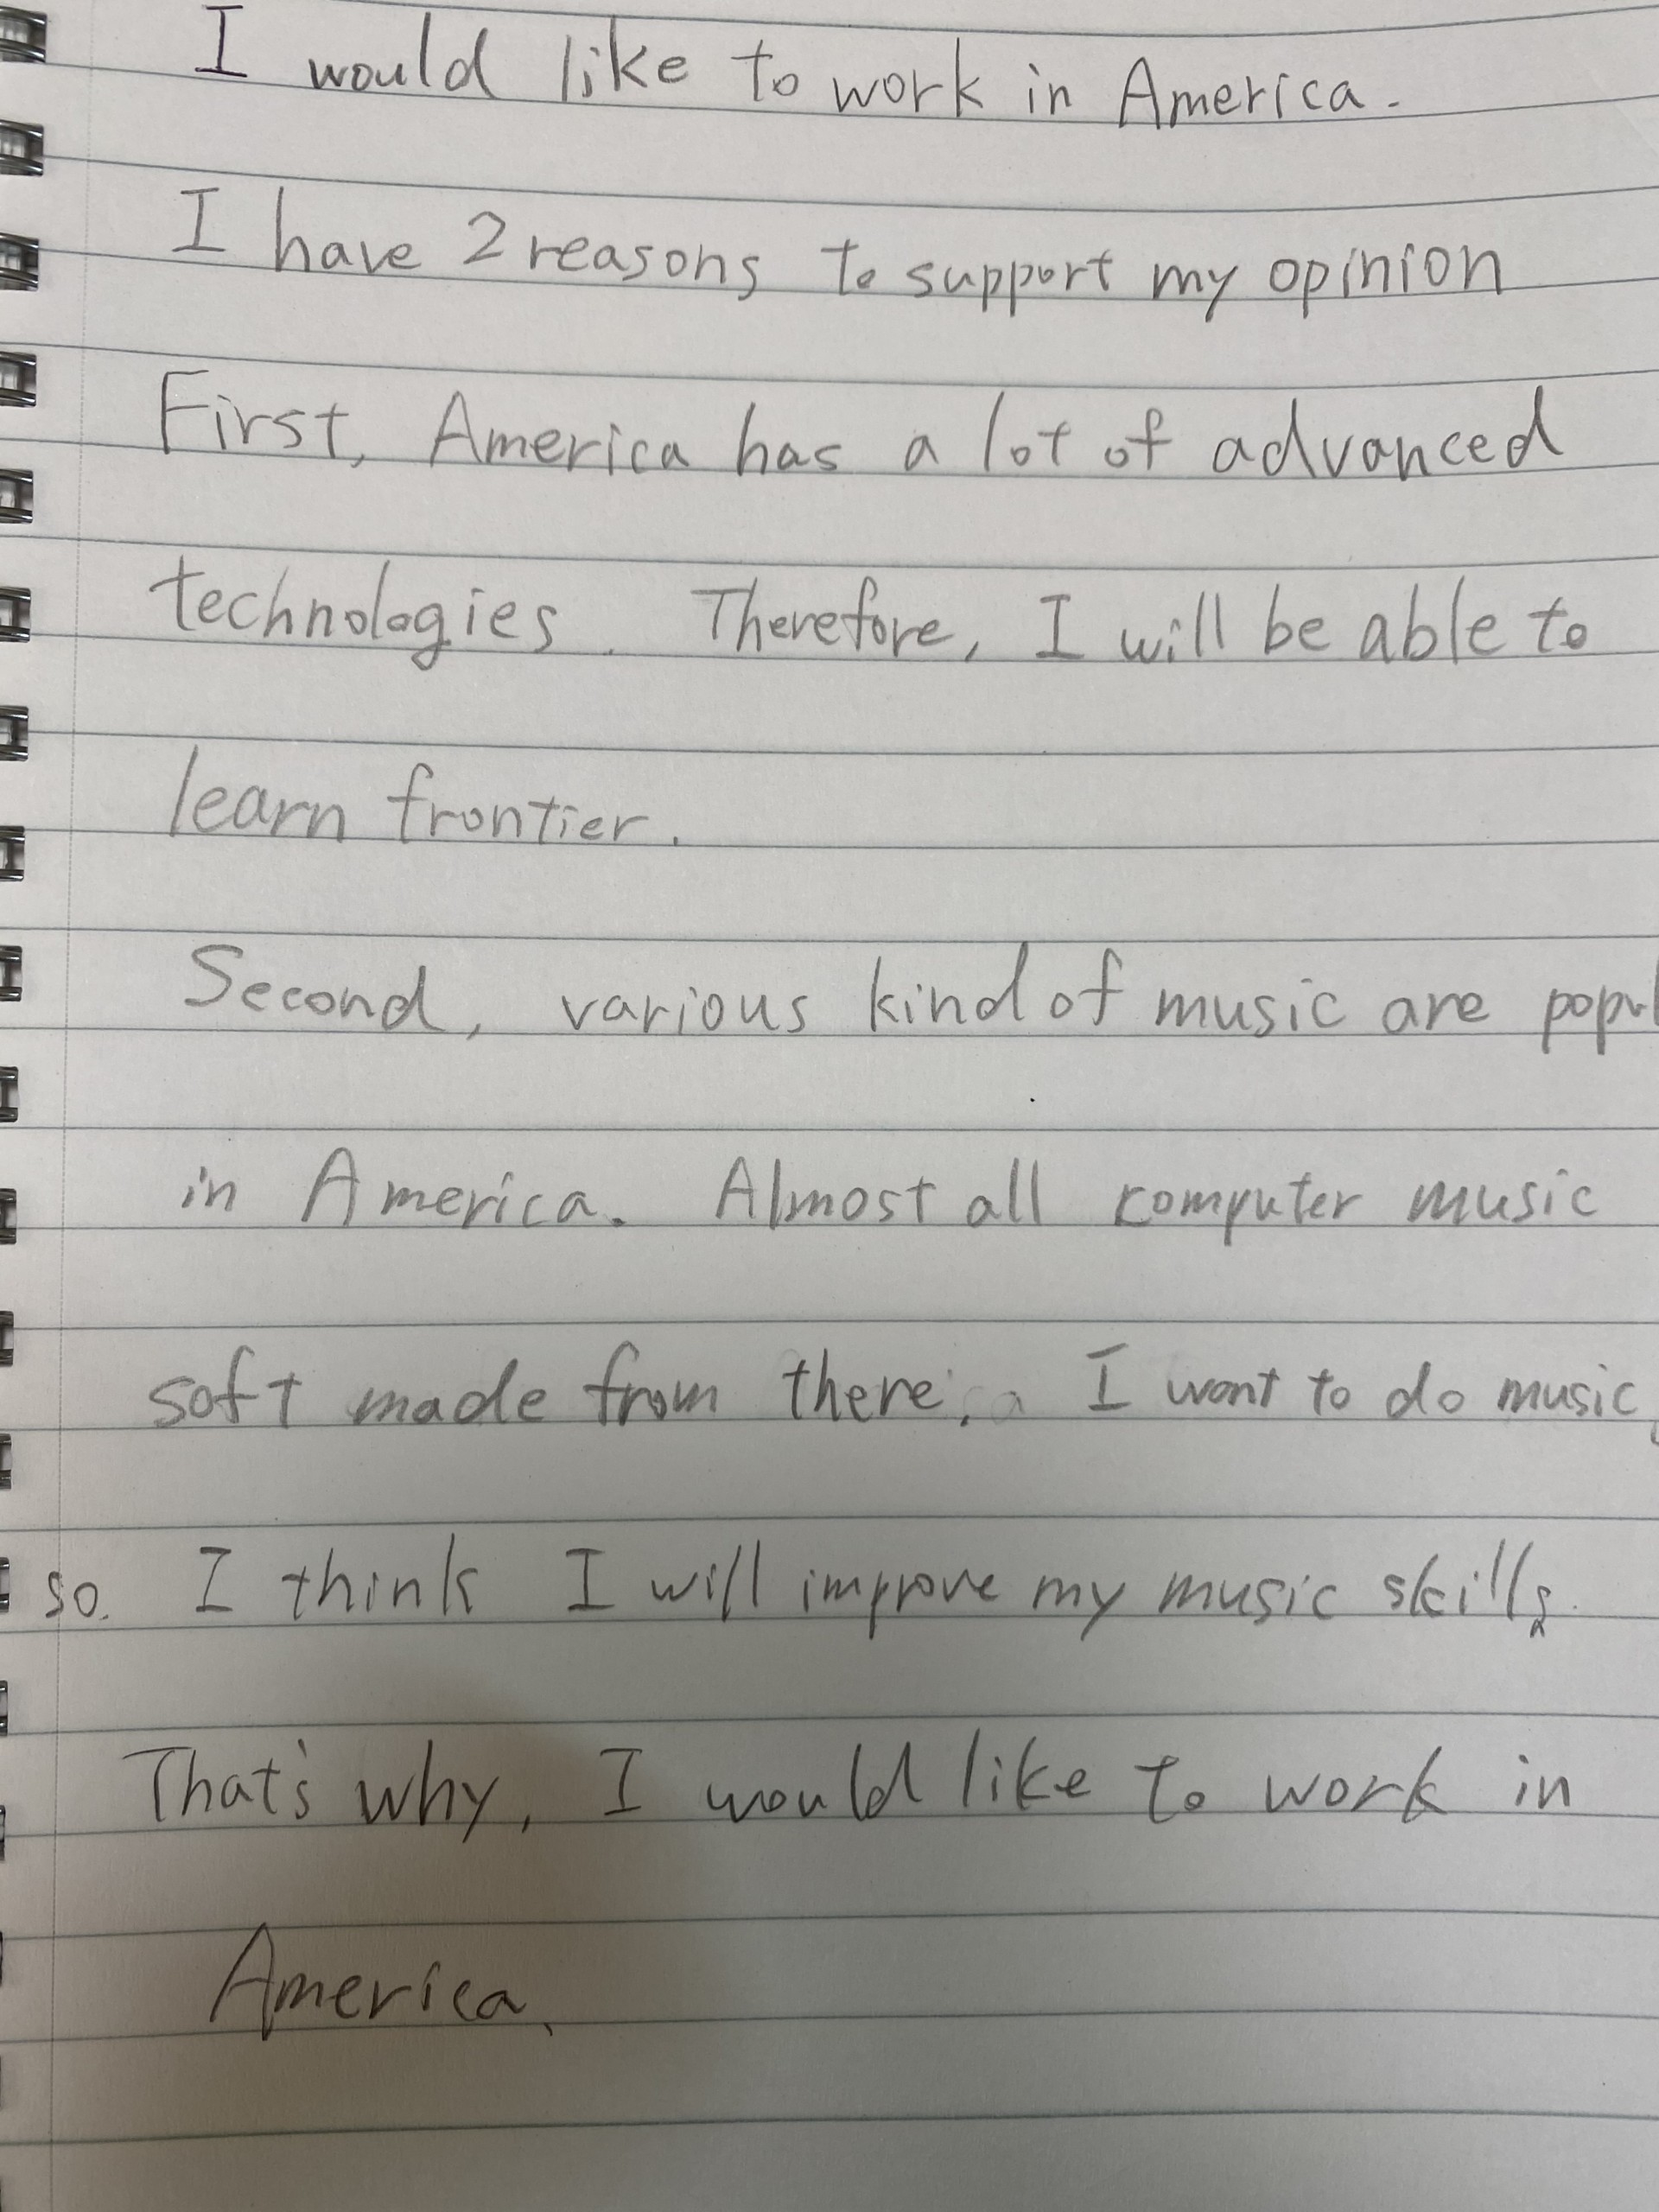 I would like to work in America.
I have 2 reasons to support my opinion
First, America has a lot of advanced
technologies. Therefore, I will be able to
learn frontier.
Second, various kind of music are popul
in America. Almost all computer music
soft made from there. I want to do music,
so. I think I will improve my music skills.
That's why, I would like to work in
America.